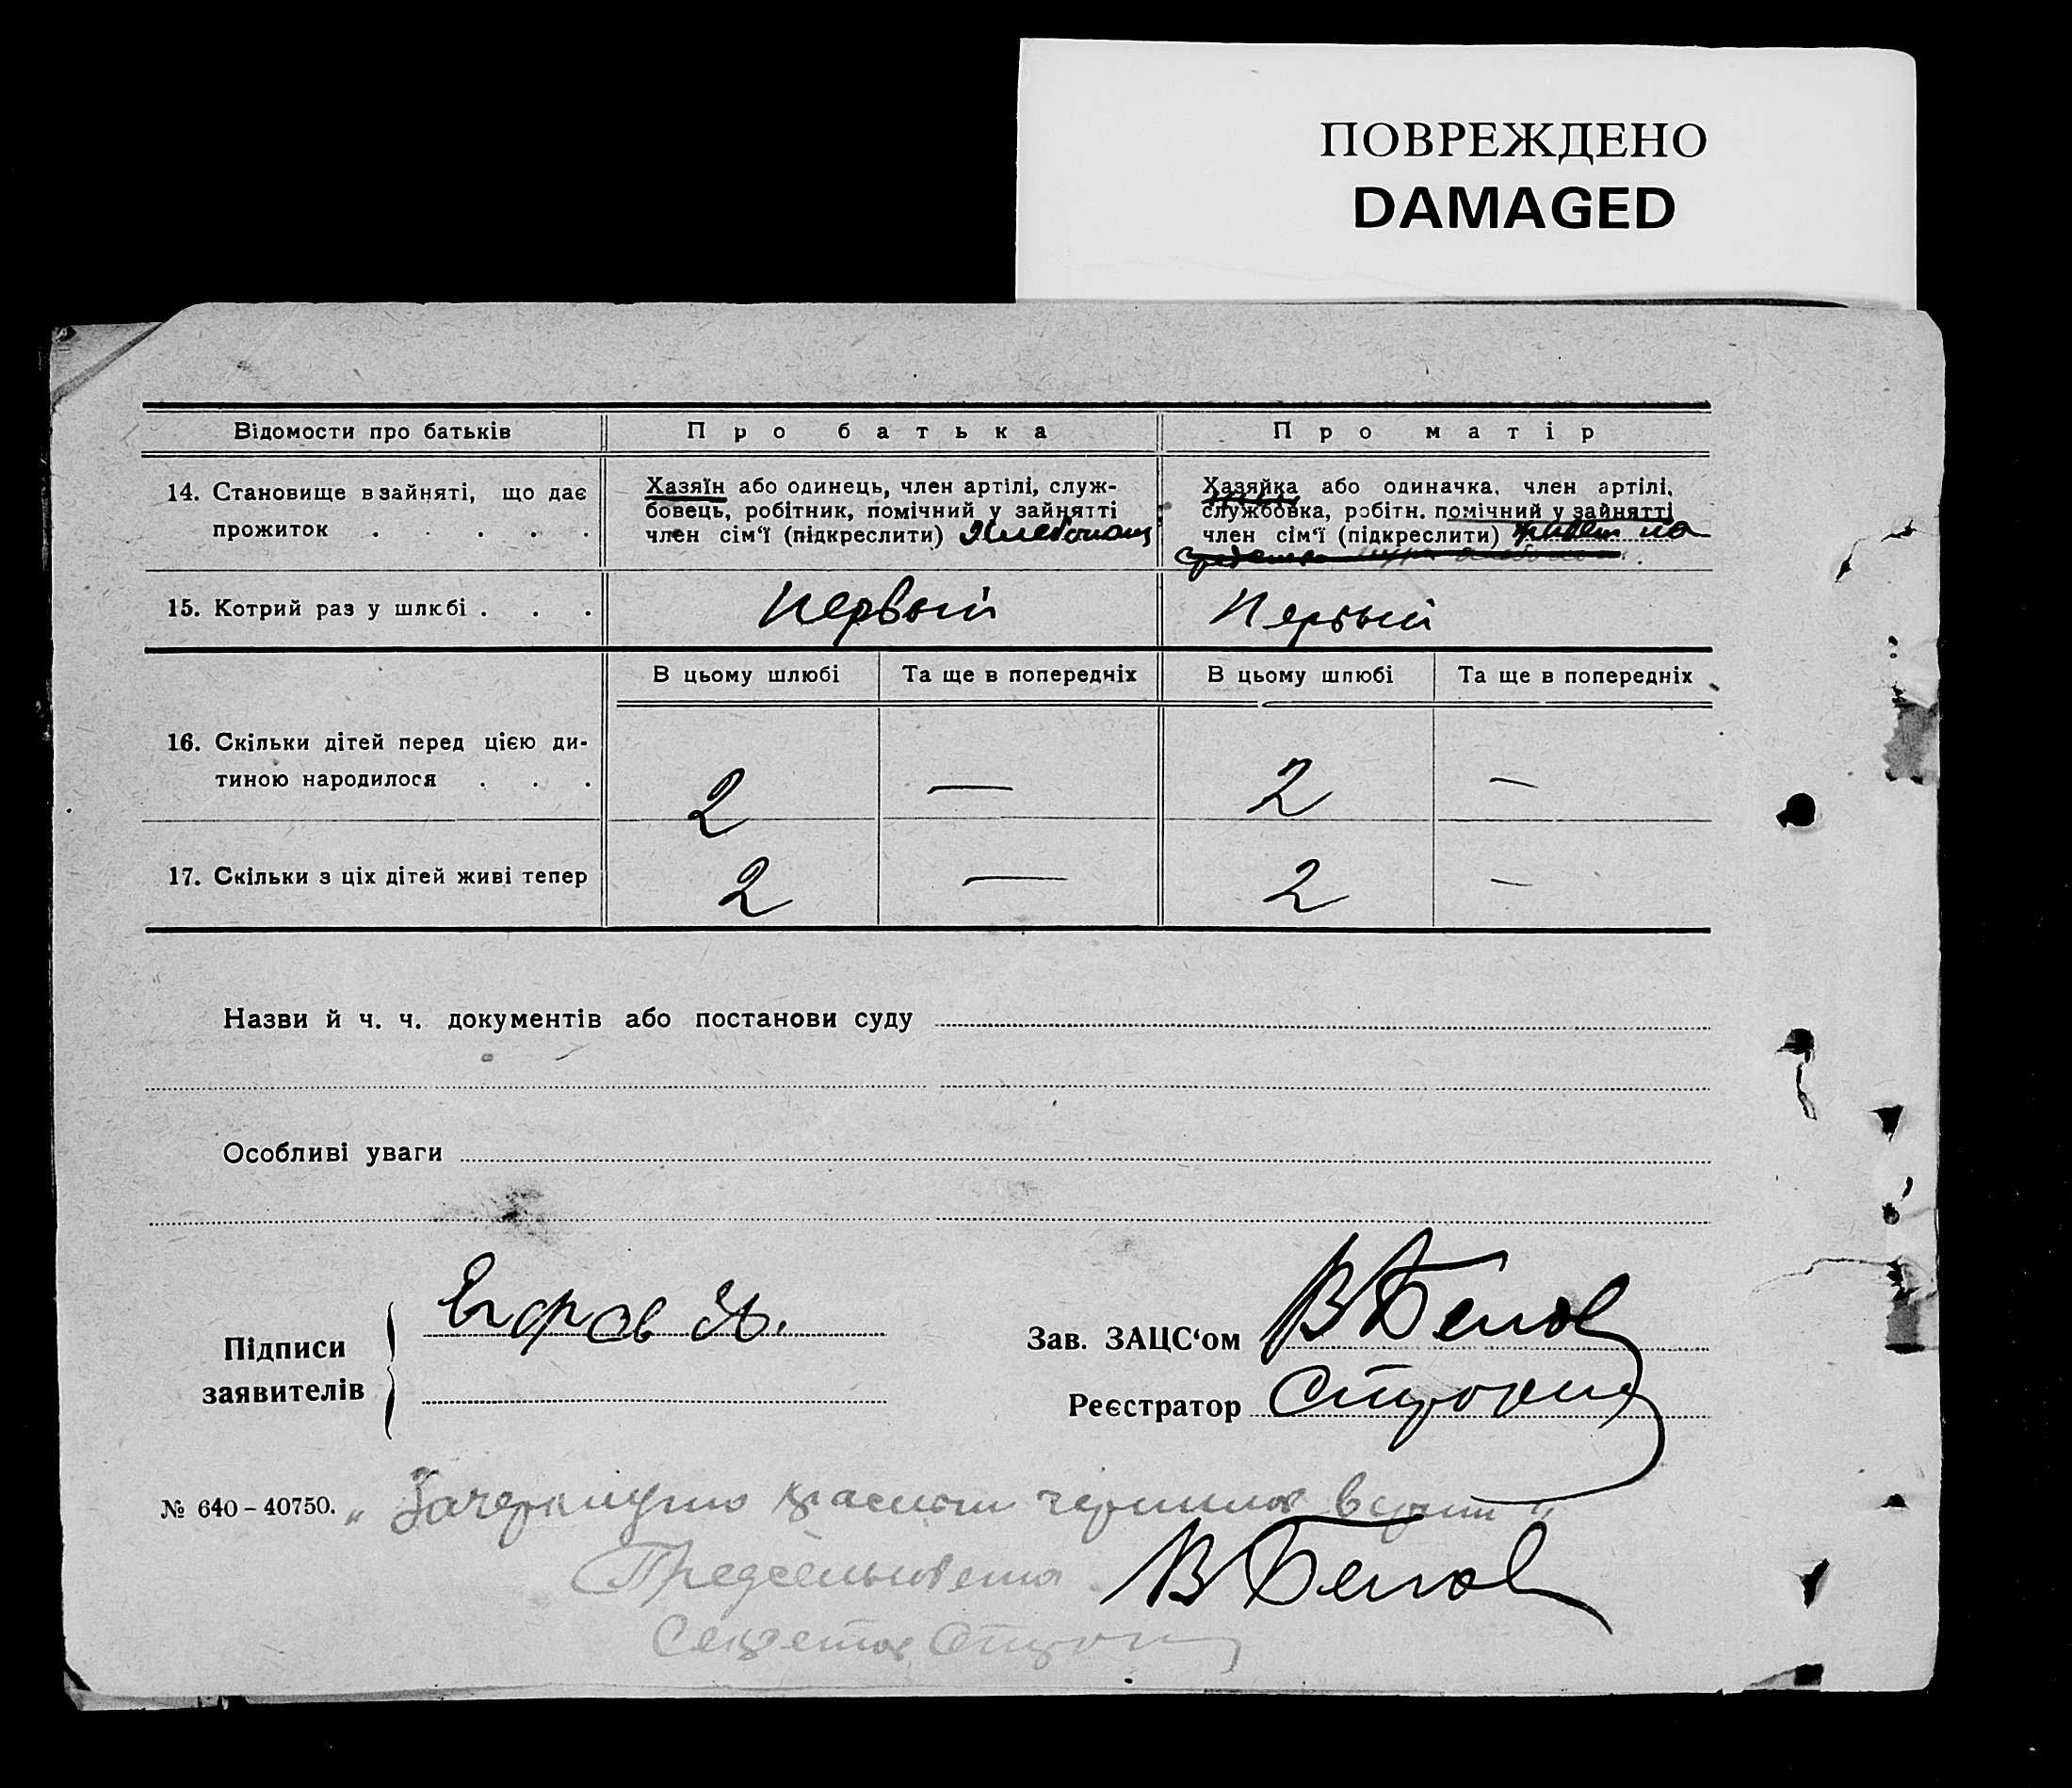 ПОВРЕЖДЕНО
DAMAGED
Відомости про батьків
Про батька
Про матір
14. Становище в зайняті, що дає
прожиток . . . . .
Хазяїн або одинець, член артілі, служ-
бовець, робітник, помічний у зайнятті
член сім'ї (підкреслити)
Хазяйка або одиначка, член артілі,
службовка, робітн. помічний у зайнятті
член сім'ї (підкреслити) живет на
средства
15. Котрий раз у шлюбі . . .
Первый
Первый
В цьому шлюбі
Та ще в попередніх
В цьому шлюбі
Та ще в попередніх
16. Скільки дітей перед цією ди-
тиною народилося . . .
2 — 2 —
17. Скільки з ціх дітей живі тепер
2 — 2 —
Назви й ч. ч. документів або постанови суду
Особливі уваги
Підписи
заявителів
Зав. ЗАЦС'ом В Белов
Реєстратор
№ 640-40750. „Зачеркнуто красным чернилом верить"
Предсельсовета В Белов
Секретарь